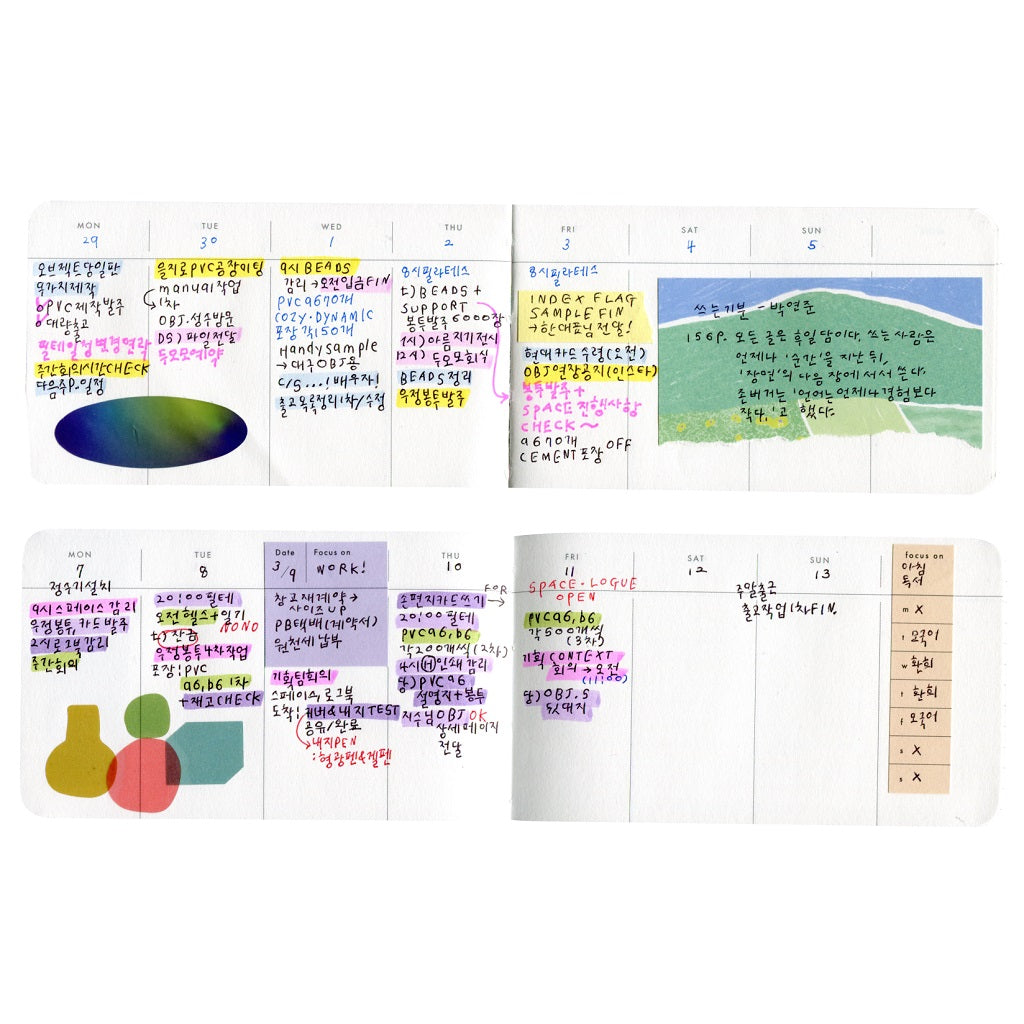 MON
29
오브젝트당일판
우가지제작
PVC제작발주
대량출고
필테일정변경연락
주간회의시간CHECK
다음주P.일정
TUE
30
을지로PVC공장미팅
manual작업
1차
OBJ.성수방문
DS)파일전달
두오모예약
WED
1
9시BEADS
감리→오전입금FIN
PVC a6 70개
COZY·DYNAMIC
포장각150개
Handy sample
→대국OBJ용
C/S...! 배우자!
출고목록정리1차/수정
THU
2
8시필라테스
BEADS+
SUPPORT
봉투발주6000장
1시)아름지기전시
12시)두오모회식
BEADS정리
우정봉투발주
FRI
3
8시필라테스
INDEX FLAG
SAMPLE FIN
→한대표님전달!
현대카드수령(오전)
OBJ연장공지(인스타)
봉투발주+
SPACE진행사항
CHECK~
a6 70개
CEMENT포장OFF
SAT
4
SUN
5
쓰는기분-박연준
156P. 모든글은휴일담이다. 쓰는사람은
언제나 '순간'을지난뒤,
'장면'의다음장에서서쓴다.
존버거는 '언어는언제나경험보다
작다,'고 했다.
MON
7
정수기설치
9시스페이스감리
우정봉투,카드발주
2시로그북감리
주간회의
TUE
8
20:00필테
오전헬스+일기
NONO
잔금
우정봉투4차작업
포장:PVC
a6,b6 1차
+재고CHECK
Date
3/9
Focus on
WORK!
창고재계약→
사이즈UP
PB택배(계약서)
원천세납부
기획팀회의
스페이스,로그북
도착! 커버&내지TEST
공유/완료
내지PEN
:형광펜&젤펜
THU
10
손편지카드쓰기
FOR
20:00필테
PVC a6,b6
각200개씩(2차)
4시 H 인쇄감리
PVC a6
설명지+봉투
지수님OBJ OK
상세페이지
전달
FRI
11
SPACE·LOGUE
OPEN
PVC a6,b6
각500개씩
(3차)
기획CONTEXT
회의→오전
(11:00)
OBJ.S
뒷대지
SAT
12
SUN
13
주말출근
출고작업1차FIN.
focus on
아침
독서
m X
t 외국어
w 한희
t 한희
f 외국어
s X
s X